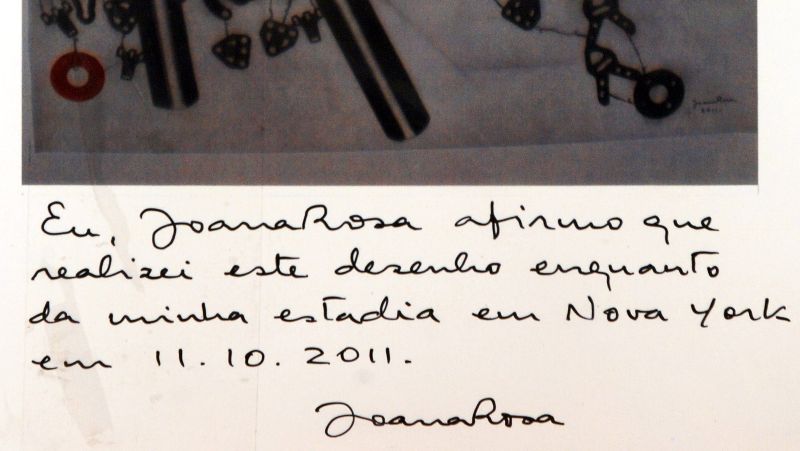 JoanaRosa
2011
Eu, JoanaRosa afirmo que
realizei este desenho enquanto
da minha estadia em Nova York
em 11.10.2011.
JoanaRosa